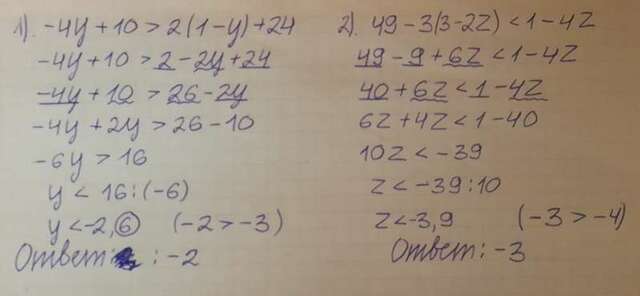 1). -4y+10>2(1-y)+24
-4y+10>2-2y+24
-4y+10>26-2y
-4y+2y>26-10
-6y>16
y<16:(-6)
y<-2,6 (-2>-3)
Ответ: : -2
2). 49-3(3-2z)<1-4z
49-9+6z<1-4z
40+6z<1-4z
6z+4z<1-40
10z<-39
z<-39:10
z<-3,9 (-3>-4)
Ответ: -3